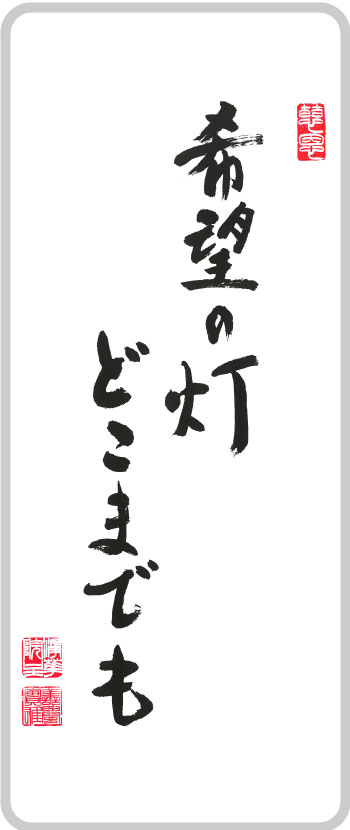 希望の灯
どこまでも